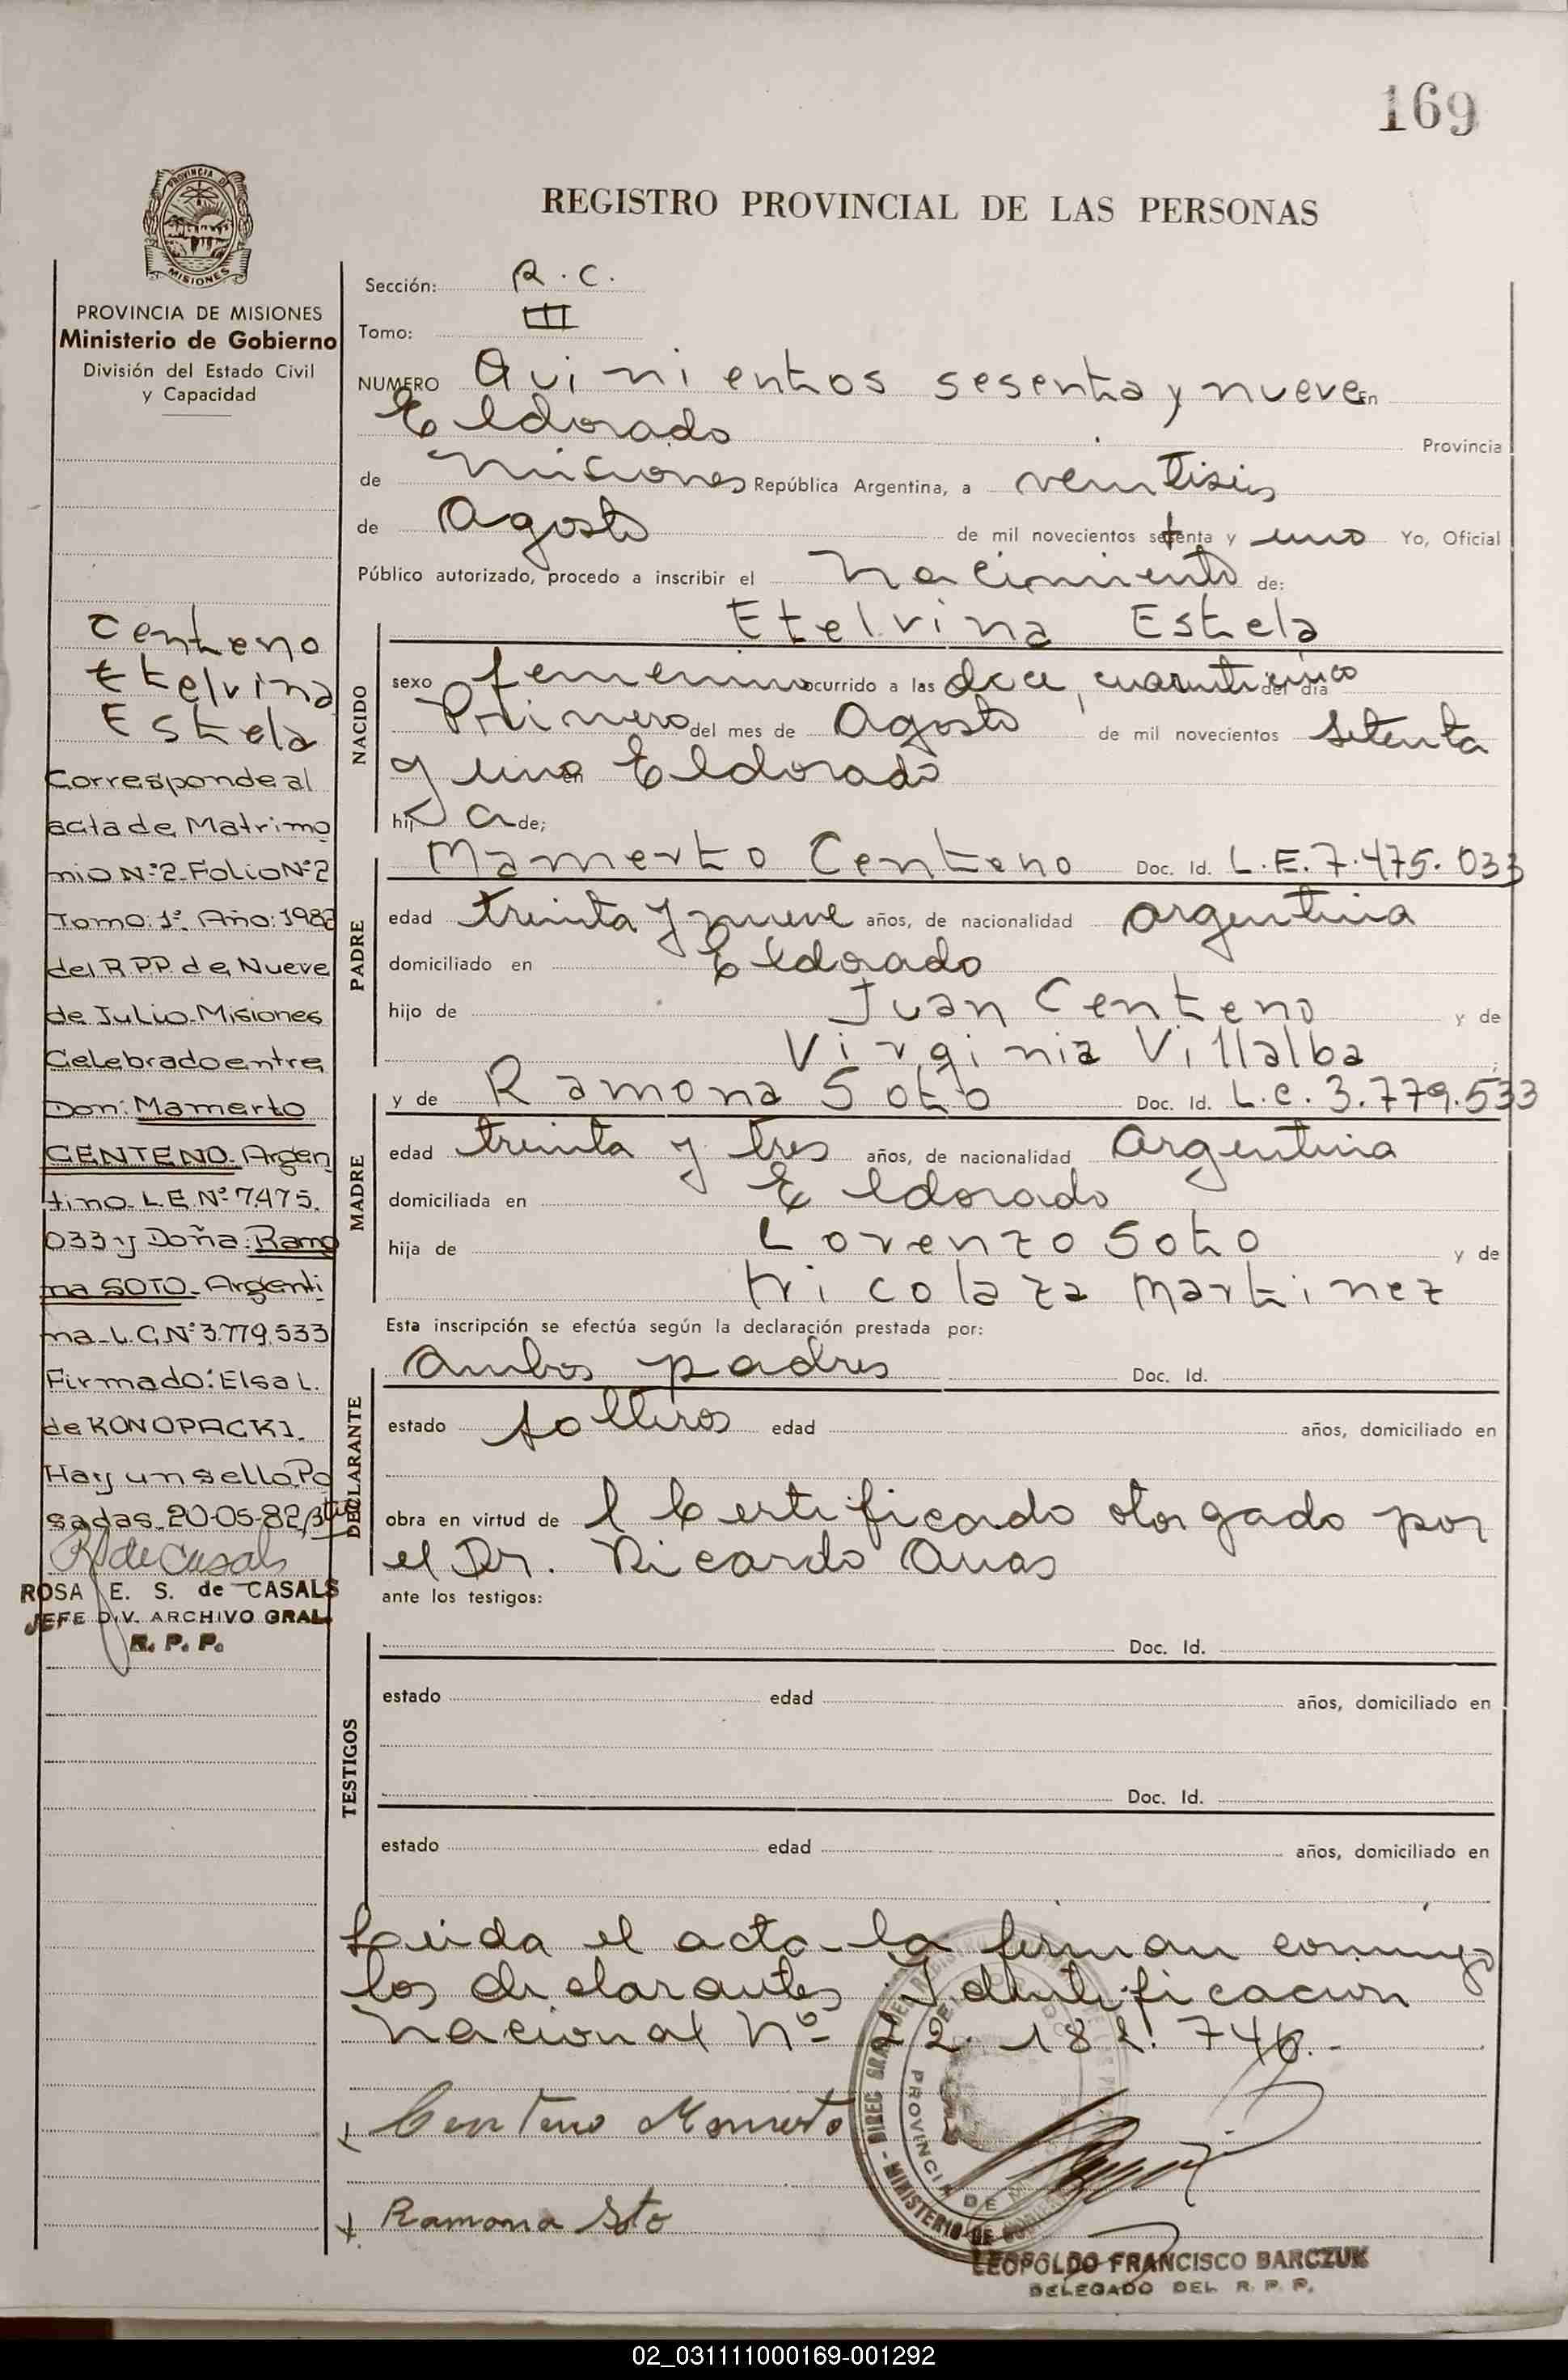 169
PROVINCIA DE
MISIONES
PROVINCIA DE MISIONES
Ministerio de Gobierno
División del Estado Civil
y Capacidad
Centeno
Etelvina
Estela
Corresponde al
acta de Matrimo
nio N.º2 Folio Nº2
Tomo: 1º Año: 1982
del R.P.P. de Nueve
de Julio. Misiones
Celebrado entre
Don: Mamerto
CENTENO. Argen
tino. L.E. Nº 7.475.
033 y Doña: Ramo
na SOTO. Argenti
na. L.C. Nº 3.779.533
Firmado: Elsa L.
de KONOPACKI.
Hay un sello. Po
sadas. 20-05-82
R de Casals
ROSA E. S. de CASALS
JEFE DIV. ARCHIVO GRAL.
R. P. P.
REGISTRO PROVINCIAL DE LAS PERSONAS
Sección: R. C.
Tomo: III
NUMERO Quinientos sesenta y nueve En
Eldorado Provincia
de Misiones República Argentina, a veintiseis
de Agosto de mil novecientos setenta y uno Yo, Oficial
Público autorizado, procedo a inscribir el nacimiento de:
NACIDO
Etelvina Estela
sexo femenino ocurrido a las doce, cuarenticinco del día
Primero del mes de Agosto de mil novecientos setenta
y uno en Eldorado
hija de;
PADRE
Mamerto Centeno Doc. Id. L.E. 7.475.033
edad treinta y nueve años, de nacionalidad argentina
domiciliado en Eldorado
hijo de Juan Centeno y de
Virginia Villalba
MADRE
y de Ramona Soto Doc. Id. L.C. 3.779.533
edad treinta y tres años, de nacionalidad Argentina
domiciliada en Eldorado
hija de Lorenzo Soto y de
Nicolaza Martinez
Esta inscripción se efectúa según la declaración prestada por:
DECLARANTE
Ambos padres Doc. Id.
estado solteros edad años, domiciliado en
obra en virtud de l Certificado otorgado por
el Dr. Ricardo
ante los testigos:
TESTIGOS
Doc. Id.
estado edad años, domiciliado en
Doc. Id.
estado edad años, domiciliado en
Leida el acta la firman conmigo
los declarantes Identificacion
Nacional Nº 22.182.746.-
Centeno Mamerto
Ramona Soto
MINISTERIO DE
PROVINCIA DE
LEOPOLDO FRANCISCO BARCZUK
DELEGADO DEL R. P. P.
02_031111000169-001292